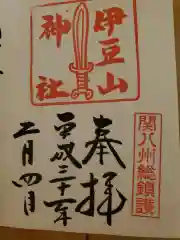 関八州総鎮護
奉拝
伊豆山
神社
平成三十一年
二月四日